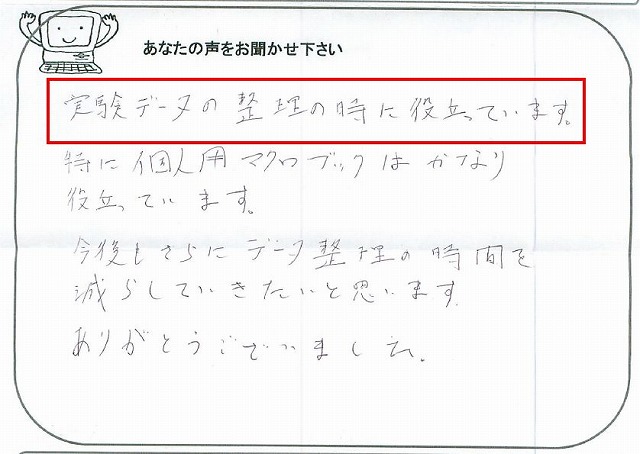 あなたの声をお聞かせ下さい
実験データの整理の時に役立っています。
特に個人用マクロブックはかなり
役立っています。
今後もさらにデータ整理の時間を
減らしていきたいと思います。
ありがとうございました。